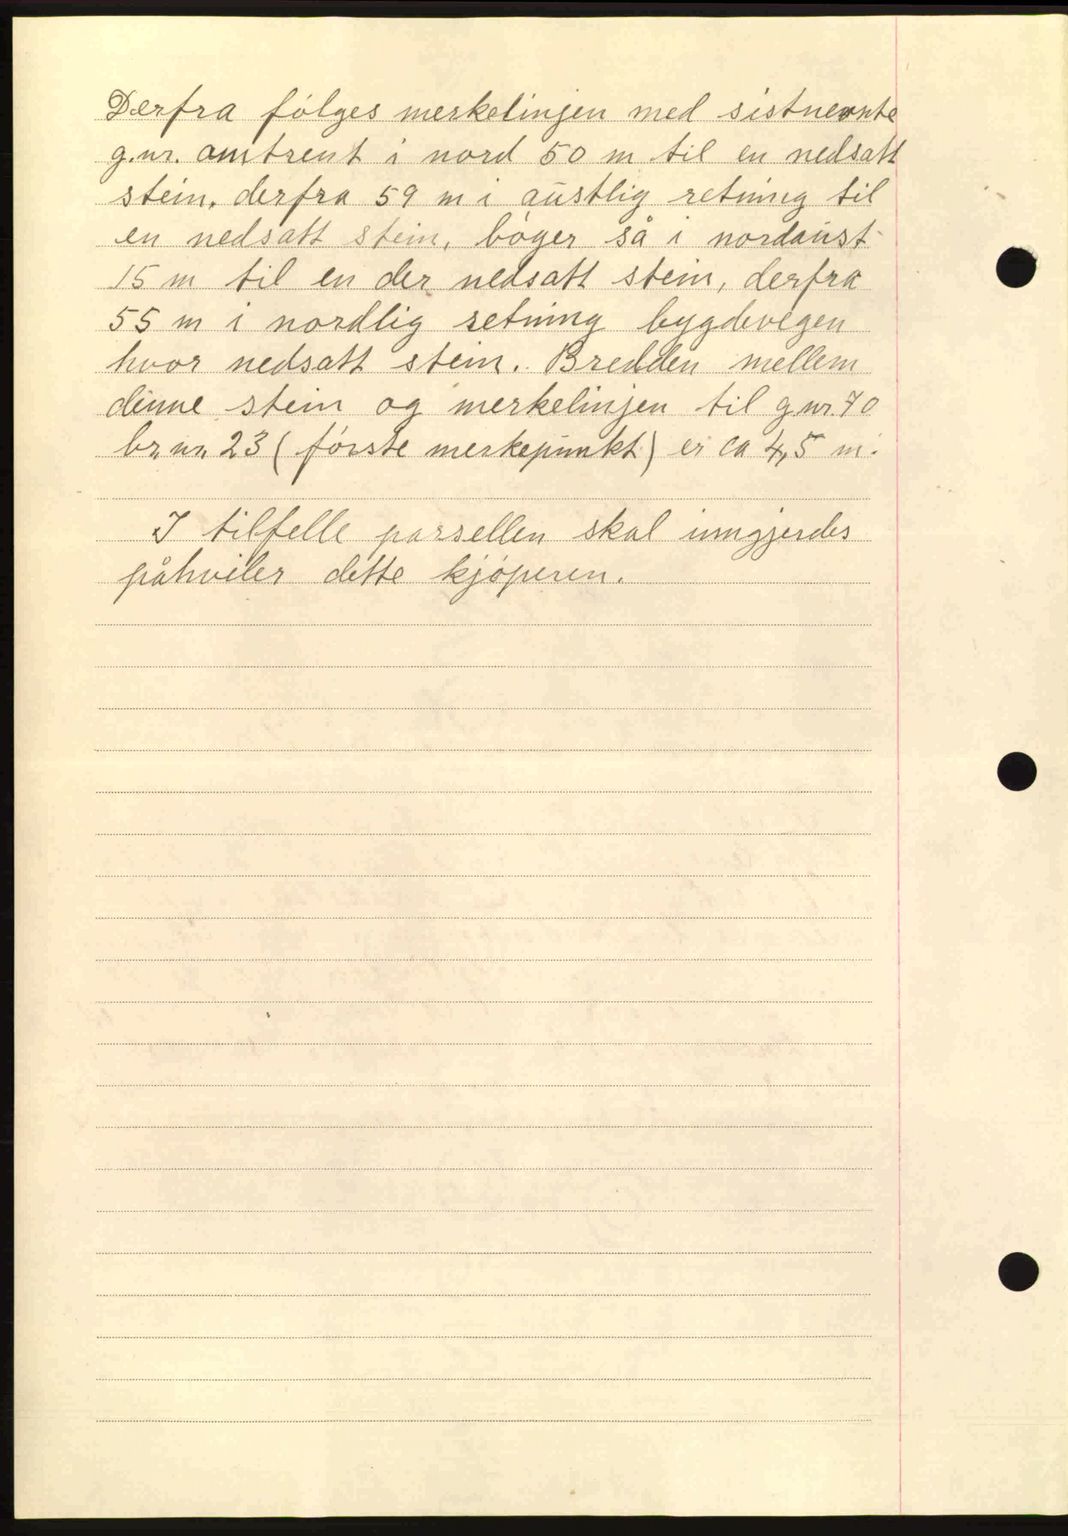 Derfra følges merkelinjen med sistnevnte
g.nr. omtrent i nord 50 m til en nedsatt
stein, derfra 59 m i austlig retning til
en nedsatt stein, bøger så i nordaust
15 m til en der nedsatt stein, derfra
55 m i nordlig retning bygdevegen
hvor nedsatt stein. Bredden mellem
denne stein og merkelinjen til g.nr. 70
br.nr. 23 (første merkepunkt) er ca 4,5 m.
I tilfelle parsellen skal inngjerdes
påhviler dette kjøperen.